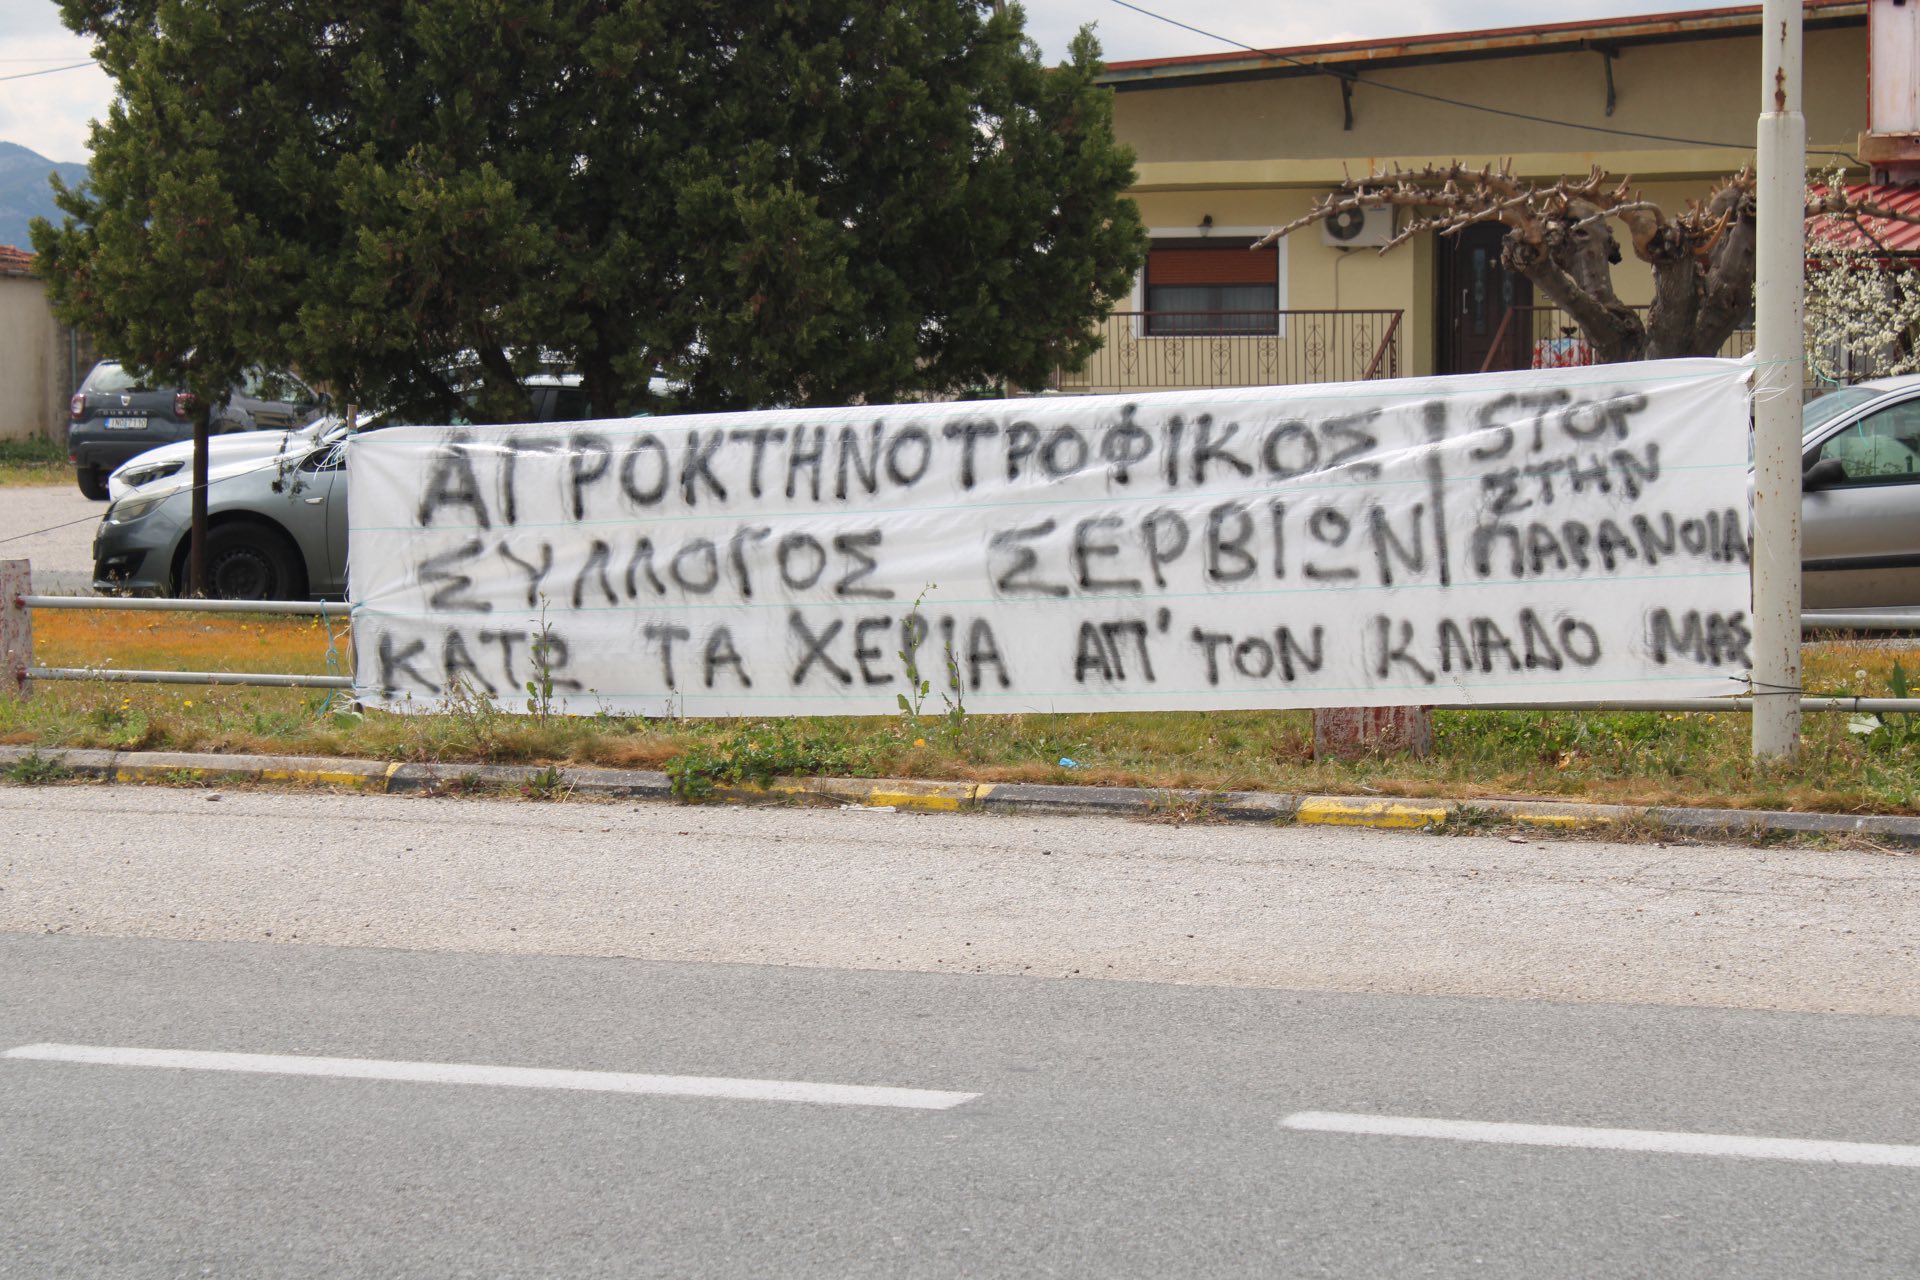 ΑΓΡΟΚΤΗΝΟΤΡΟΦΙΚΟΣ
ΣΥΛΛΟΓΟΣ ΣΕΡΒΙΩΝ
STOP
ΣΤΗΝ
ΠΑΡΑΝΟΙΑ
ΚΑΤΩ ΤΑ ΧΕΡΙΑ ΑΠ' ΤΟΝ ΚΛΑΔΟ ΜΑΣ
DUSTER